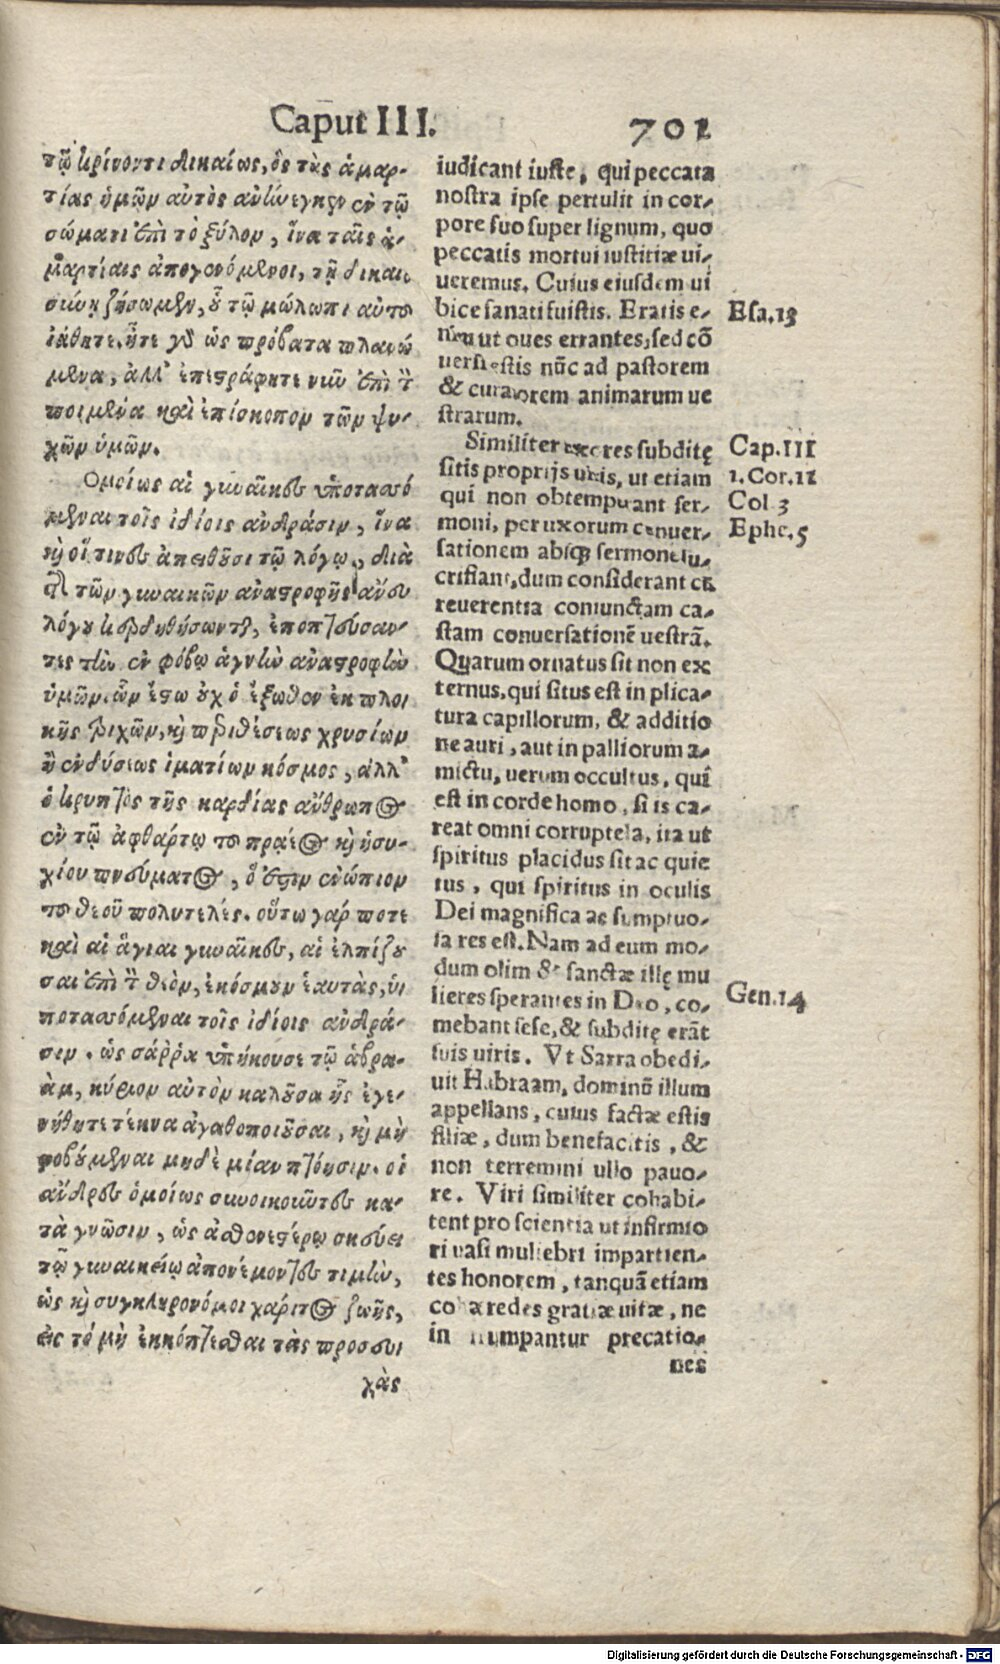 Caput III.
701
τῷ κρίνοντι δικαίως, ὃς τὰς ἁμαρ-
τίας ἡμῶν αὐτὸς ἀνήνεγκεν ἐν τῷ
σώματι ἐπὶ τὸ ξύλον, ἵνα ταῖς ἁ-
μαρτίαις ἀπογενόμενοι, τῇ δικαι
σύνῃ ζήσωμεν, οὗ τῷ μώλωπι αὐτοῦ
ἰάθητε. ἦτε γὰρ ὡς πρόβατα πλανώ
μενα, ἀλλ' ἐπεστράφητε νῦν ἐπὶ τὸν
ποιμένα καὶ ἐπίσκοπον τῶν ψυ-
χῶν ὑμῶν.
Ὁμοίως αἱ γυναῖκες ὑποτασσό
μεναι τοῖς ἰδίοις ἀνδράσιν, ἵνα
καὶ οἵ τινες ἀπειθοῦσι τῷ λόγῳ, διὰ
τῆς τῶν γυναικῶν ἀναστροφῆς ἄνευ
λόγου κερδηθήσωνται, ἐποπτεύσαν-
τες τὴν ἐν φόβῳ ἁγνὴν ἀναστροφὴν
ὑμῶν. ὧν ἔστω οὐχ ὁ ἔξωθεν ἐκ πλοι
κῆς τριχῶν, καὶ περιθέσεως χρυσίων
ἢ ἐνδύσεως ἱματίων κόσμος, ἀλλ'
ὁ κρυπτὸς τῆς καρδίας ἄνθρωπος
ἐν τῷ ἀφθάρτῳ τοῦ πράεος καὶ ἡσυ-
χίου πνεύματος, ὅ ἐστιν ἐνώπιον
τοῦ θεοῦ πολυτελές. οὕτω γάρ ποτε
καὶ αἱ ἅγιαι γυναῖκες, αἱ ἐλπίζου
σαι ἐπὶ τὸν θεὸν, ἐκόσμουν ἑαυτὰς, ὑ
ποτασσόμεναι τοῖς ἰδίοις ἀνδρά-
σιν. ὡς σάρρα ὑπήκουσε τῷ ἀβρα-
ὰμ, κύριον αὐτὸν καλοῦσα ἧς ἐγε-
νήθητε τέκνα ἀγαθοποιοῦσαι, καὶ μὴ
φοβούμεναι μηδὲ μίαν πτόησιν. οἱ
ἄνδρες ὁμοίως συνοικοῦντες κα-
τὰ γνῶσιν, ὡς ἀσθενεστέρῳ σκεύει
τῷ γυναικείῳ ἀπονέμοντες τιμὴν,
ὡς καὶ συγκληρονόμοι χάριτος ζωῆς,
εἰς τὸ μὴ ἐκκόπτεσθαι τὰς προσευ
χὰς
iudicant iuste, qui peccata
nostra ipse pertulit in cor-
pore suo super lignum, quo
peccatis mortui iustitiæ ui-
ueremus. Cuius eiusdem ui
bice sanati fuistis. Eratis e-
nim ut oues errantes, sed cõ
uersi estis nũc ad pastorem
& curatorem animarum ue
strarum.
Similiter uxores subditę
sitis proprijs uiris, ut etiam
qui non obtemperant ser-
moni, per uxorum conuer-
sationem absq; sermone lu-
crifiant, dum considerant cũ
reuerentia coniunctam ca-
stam conuersationẽ uestrã.
Quarum ornatus sit non ex
ternus, qui situs est in plica-
tura capillorum, & additio
ne auri, aut in palliorum a-
mictu, uerum occultus, qui
est in corde homo, si is ca-
reat omni corruptela, ita ut
spiritus placidus sit ac quie
tus, qui spiritus in oculis
Dei magnifica ac sumptuo-
sa res est. Nam ad eum mo-
dum olim & sanctæ illę mu
lieres sperantes in Deo, co-
mebant sese, & subditę erãt
suis uiris. Vt Sarra obedi-
uit Habraam, dominũ illum
appellans, cuius factæ estis
filiæ, dum benefacitis, &
non terremini ullo pauo-
re. Viri similiter cohabi-
tent pro scientia ut infirmio
ri uasi muliebri impartien-
tes honorem, tanquã etiam
cohæredes gratiæ uitæ, ne
in rumpantur precatio-
nes
Esa.13
Cap.III
1.Cor.11
Col 3
Ephe.5
Gen.14
Digitalisierung gefördert durch die Deutsche Forschungsgemeinschaft - DFG